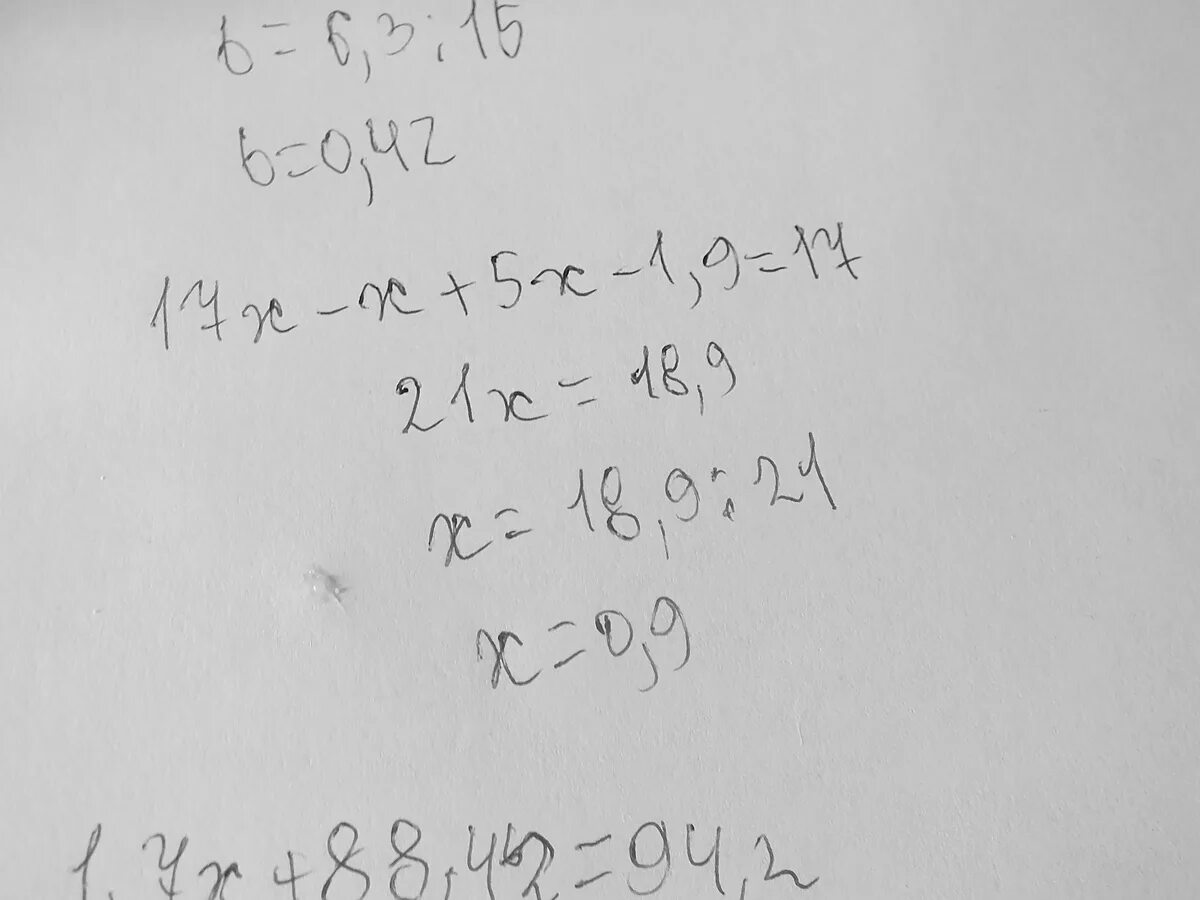 b = 6,3 : 15
b = 0,42
17x - x + 5x - 1,9 = 17
21x = 18,9
x = 18,9 : 21
x = 0,9
1,7x + 88,42 = 94,2